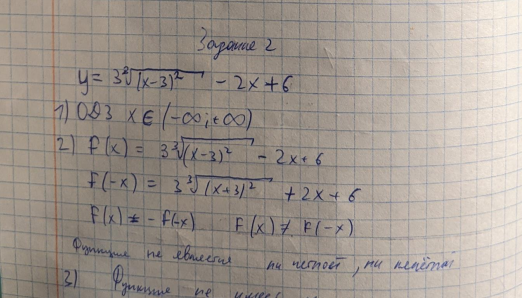 Задание 2
y = 3∛(x-3)² - 2x + 6
1) ОДЗ x ∈ (-∞; +∞)
2) f(x) = 3∛(x-3)² - 2x + 6
f(-x) = 3∛(x+3)² + 2x + 6
f(x) ≠ -f(-x) f(x) ≠ f(-x)
Функция не является ни чётной, ни нечётной
3) Функция не